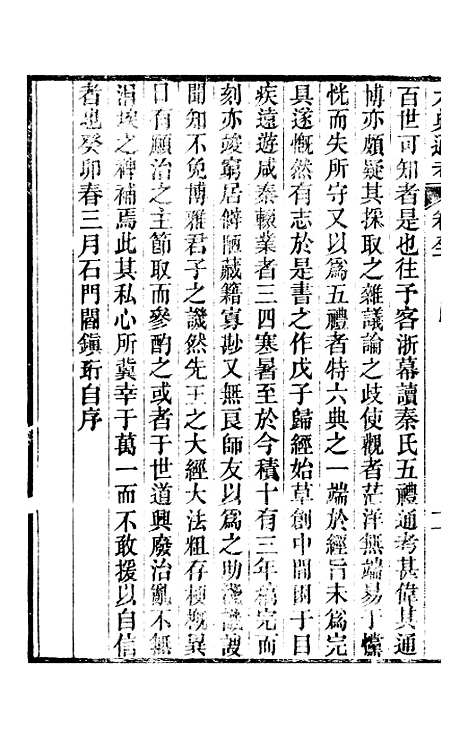 六典通考
百世可知者是也往予客浙幕讀秦氏五禮通考甚偉其通
博亦頗疑其採取之雜議論之歧使觀者茫洋無端易于懷
恍而失所守又以爲五禮者特六典之一端於經旨未爲完
具遂慨然有志於是書之作戊子歸經始草創中間困于目
疾遠遊咸秦輟業者三四寒暑至於今積十有三年稿完而
刻亦竣窮居僻陋藏籍寡尠又無良師友以爲之助淺識謏
聞知不免博雅君子之譏然先王之大經大法粗存梗概異
日有願治之主節取而參酌之或者于世道興廢治亂不無
涓埃之裨補焉此其私心所冀幸于萬一而不敢援以自信
者也癸卯春三月石門閻鎮珩自序